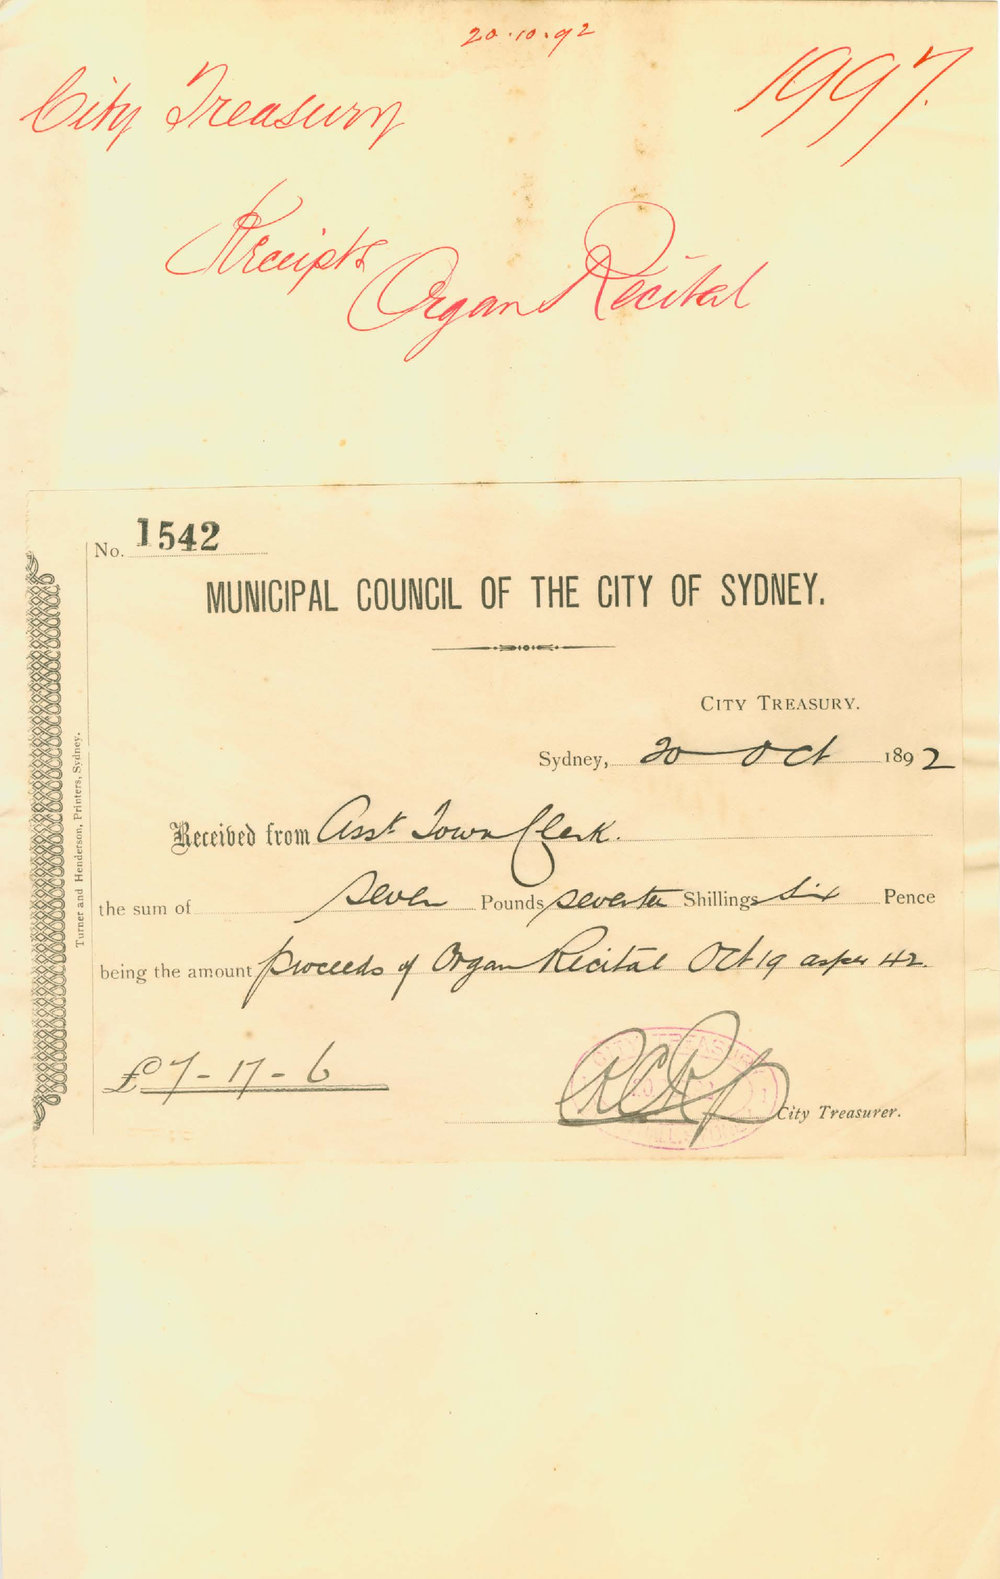 20.10.92
City Treasury
1997.
Receipts
Organ Recital
No. 1542
MUNICIPAL COUNCIL OF THE CITY OF SYDNEY.
CITY TREASURY.
Sydney, 20 Oct 1892
Received from Asst Town Clerk.
the sum of seven Pounds seventeen Shillings six Pence
being the amount proceeds of Organ Recital Oct 19 as per 42.
£7-17-6
City Treasurer.
Turner and Henderson, Printers, Sydney.
CITY TREASURY